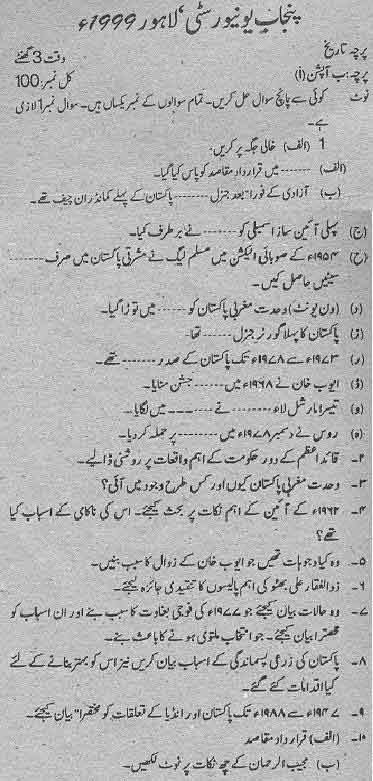 پنجاب یونیورسٹی، لاہور 1999ء
پرچہ تاریخ
وقت 3 گھنٹے
پرچہ: ب آپشن (i)
کل نمبر: 100
نوٹ کوئی سے پانچ سوال حل کریں۔ تمام سوالوں کے نمبر یکساں ہیں۔ سوال نمبر 1 لازمی
ہے۔
1 (الف) خالی جگہ پر کریں:
(الف) ------- میں قرارداد مقاصد کو پاس کیا گیا۔
(ب) آزادی کے فوراً بعد جنرل ------- پاکستان کے پہلے کمانڈر ان چیف تھے۔
(ج) پہلی آئین ساز اسمبلی کو ------- نے برطرف کیا۔
(ح) ۱۹۵۴ء کے صوبائی الیکشن میں مسلم لیگ نے مشرقی پاکستان میں صرف -------
سیٹیں حاصل کیں۔
(د) (ون یونٹ) وحدت مغربی پاکستان کو ------- میں توڑا گیا۔
(ڈ) پاکستان کا پہلا گورنر جنرل ------- تھا۔
(ر) ۱۹۷۳ء سے ۱۹۷۸ء تک پاکستان کے صدر ------- تھے۔
(ڑ) ایوب خان نے ۱۹۶۸ء میں ------- جشن منایا۔
(و) تیسرا مارشل لاء ------- نے ------- میں لگایا۔
(ہ) روس نے دسمبر ۱۹۷۸ء میں ------- پر حملہ کر دیا۔
۲۔ قائداعظم کے دور حکومت کے اہم واقعات پر روشنی ڈالیے۔
۳۔ وحدت مغربی پاکستان کیوں اور کس طرح وجود میں آئی؟
۴۔ ۱۹۶۲ء کے آئین کے اہم نکات پر بحث کیجئے۔ اس کی ناکامی کے اسباب کیا
تھے؟
۵۔ وہ کیا وجوہات تھیں جو ایوب خان کے زوال کا سبب بنیں۔
۶۔ ذوالفقار علی بھٹو کی اہم پالیسوں کا تنقیدی جائزہ لیجئے۔
۷۔ وہ حالات بیان کیجئے جو ۱۹۷۷ء کی فوجی بغاوت کا سبب بنے اور ان اسباب کو
مختصراً بیان کیجئے۔ جو انتخاب ملتوی ہونے کا باعث بنے۔
۸۔ پاکستان کی زرعی پسماندگی کے اسباب بیان کریں نیز اس کو بہتر بنانے کے لئے
کیا اقدامات کئے گئے۔
۹۔ ۱۹۴۷ء سے ۱۹۸۸ء تک پاکستان اور انڈیا کے تعلقات کو مختصراً بیان کیجئے۔
۱۰۔ (الف) قرارداد مقاصد
(ب) مجیب الرحمان کے چھ نکات پر نوٹ لکھیں۔